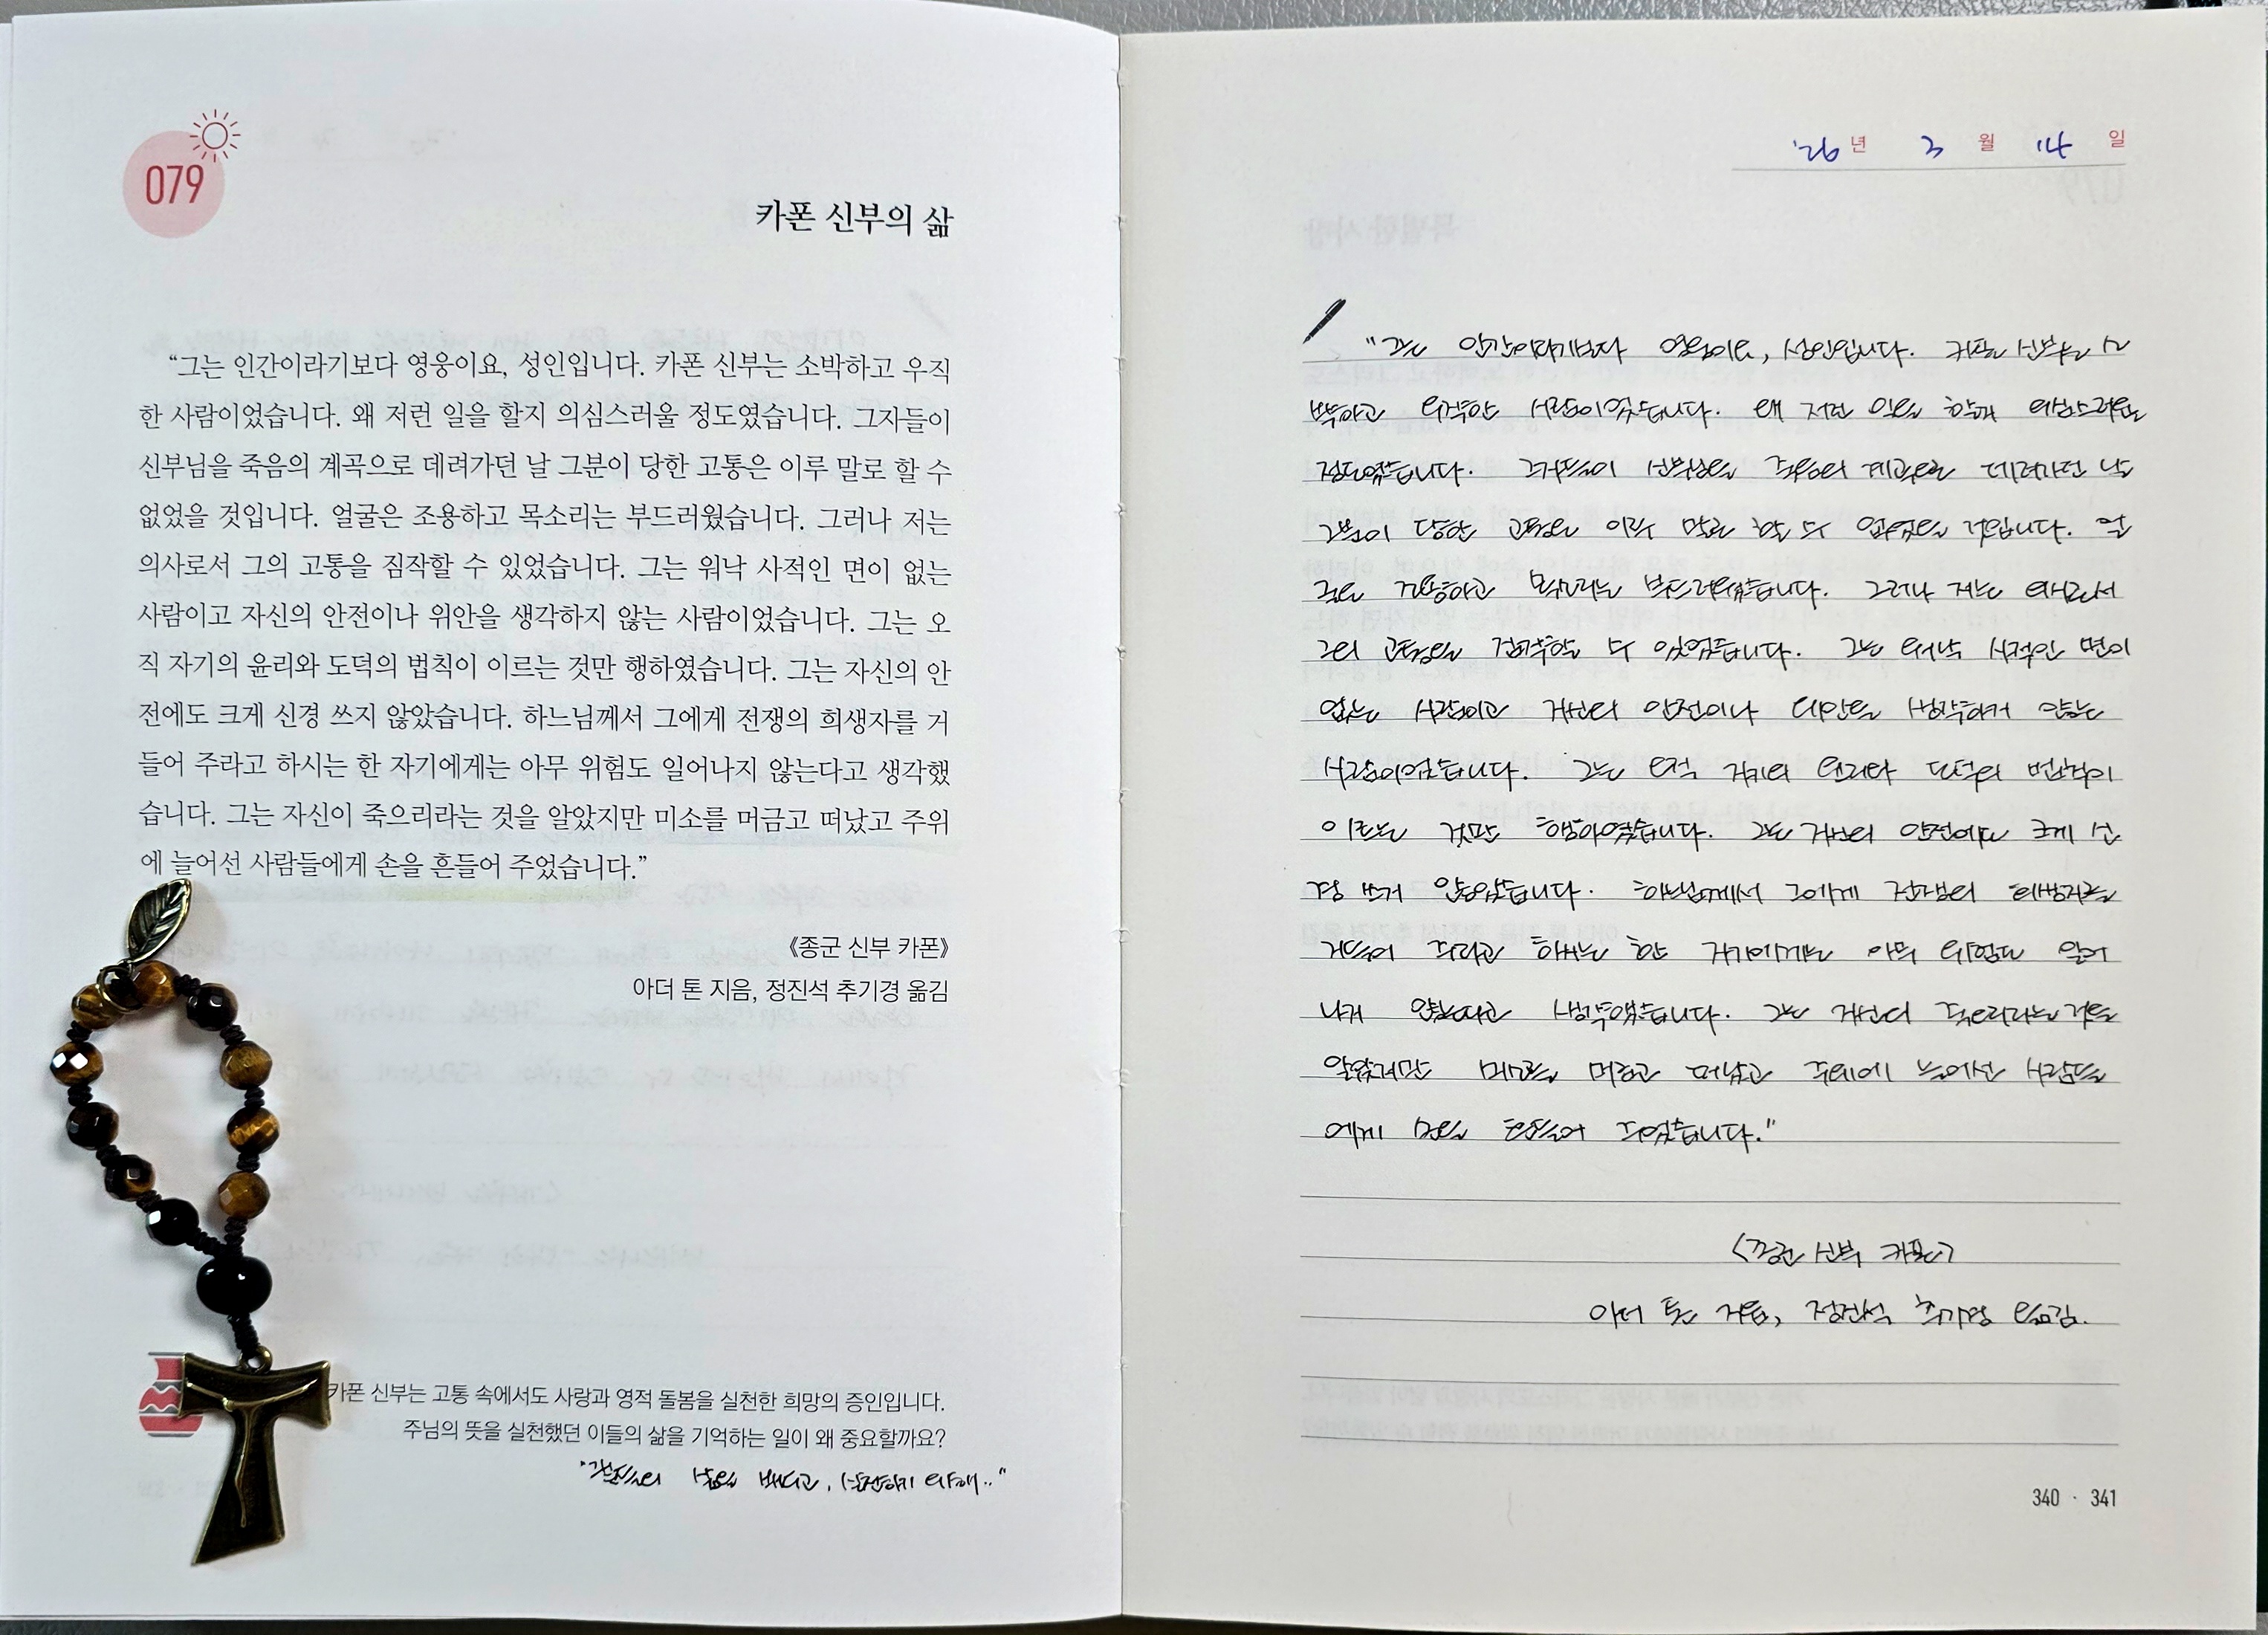 079
카폰 신부의 삶
“그는 인간이라기보다 영웅이요, 성인입니다. 카폰 신부는 소박하고 우직
한 사람이었습니다. 왜 저런 일을 할지 의심스러울 정도였습니다. 그자들이
신부님을 죽음의 계곡으로 데려가던 날 그분이 당한 고통은 이루 말로 할 수
없었을 것입니다. 얼굴은 조용하고 목소리는 부드러웠습니다. 그러나 저는
의사로서 그의 고통을 짐작할 수 있었습니다. 그는 워낙 사적인 면이 없는
사람이고 자신의 안전이나 위안을 생각하지 않는 사람이었습니다. 그는 오
직 자기의 윤리와 도덕의 법칙이 이르는 것만 행하였습니다. 그는 자신의 안
전에도 크게 신경 쓰지 않았습니다. 하느님께서 그에게 전쟁의 희생자를 거
들어 주라고 하시는 한 자기에게는 아무 위험도 일어나지 않는다고 생각했
습니다. 그는 자신이 죽으리라는 것을 알았지만 미소를 머금고 떠났고 주위
에 늘어선 사람들에게 손을 흔들어 주었습니다.”
《종군 신부 카폰》
아더 톤 지음, 정진석 추기경 옮김
카폰 신부는 고통 속에서도 사랑과 영적 돌봄을 실천한 희망의 증인입니다.
주님의 뜻을 실천했던 이들의 삶을 기억하는 일이 왜 중요할까요?
삶을 배우고, 실천하기 위해.."
'26년 3월 14일
"그는 인간이라기보다 영웅이요, 성인입니다. 카폰 신부는 소
박하고 우직한 사람이었습니다. 왜 저런 일을 할지 의심스러울
정도였습니다. 그자들이 신부님을 죽음의 계곡으로 데려가던 날
그분이 당한 고통은 이루 말로 할 수 없었을 것입니다. 얼
굴은 조용하고 목소리는 부드러웠습니다. 그러나 저는 의사로서
그의 고통을 짐작할 수 있었습니다. 그는 워낙 사적인 면이
없는 사람이고 자신의 안전이나 위안을 생각하지 않는
사람이었습니다. 그는 오직 자기의 윤리와 도덕의 법칙이
이르는 것만 행하였습니다. 그는 자신의 안전에도 크게 신
경 쓰지 않았습니다. 하느님께서 그에게 전쟁의 희생자를
거들어 주라고 하시는 한 자기에게는 아무 위험도 일어
나지 않는다고 생각했습니다. 그는 자신이 죽으리라는 것을
알았지만 미소를 머금고 떠났고 주위에 늘어선 사람들
에게 손을 흔들어 주었습니다."
<종군 신부 카폰>
아더 톤 지음, 정진석 추기경 옮김.
340 · 341